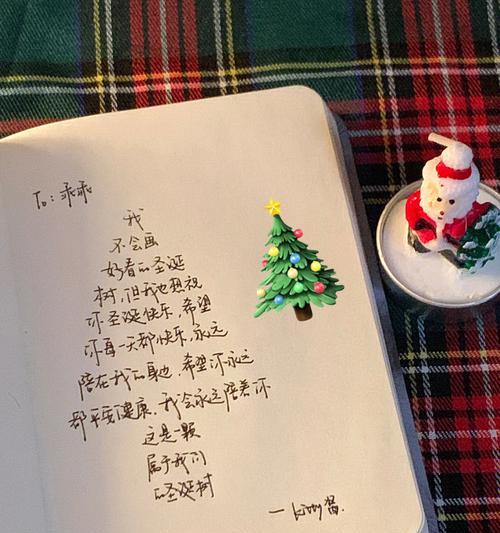 To：乖乖
我
不会画
好看的圣诞
树，但我也想祝
你圣诞快乐，希望
你每一天都快乐，永远
陪在我的身边，希望你永远
都平安健康，我会永远陪着你
这是一颗
属于我们
的圣诞树
— kitty酱.